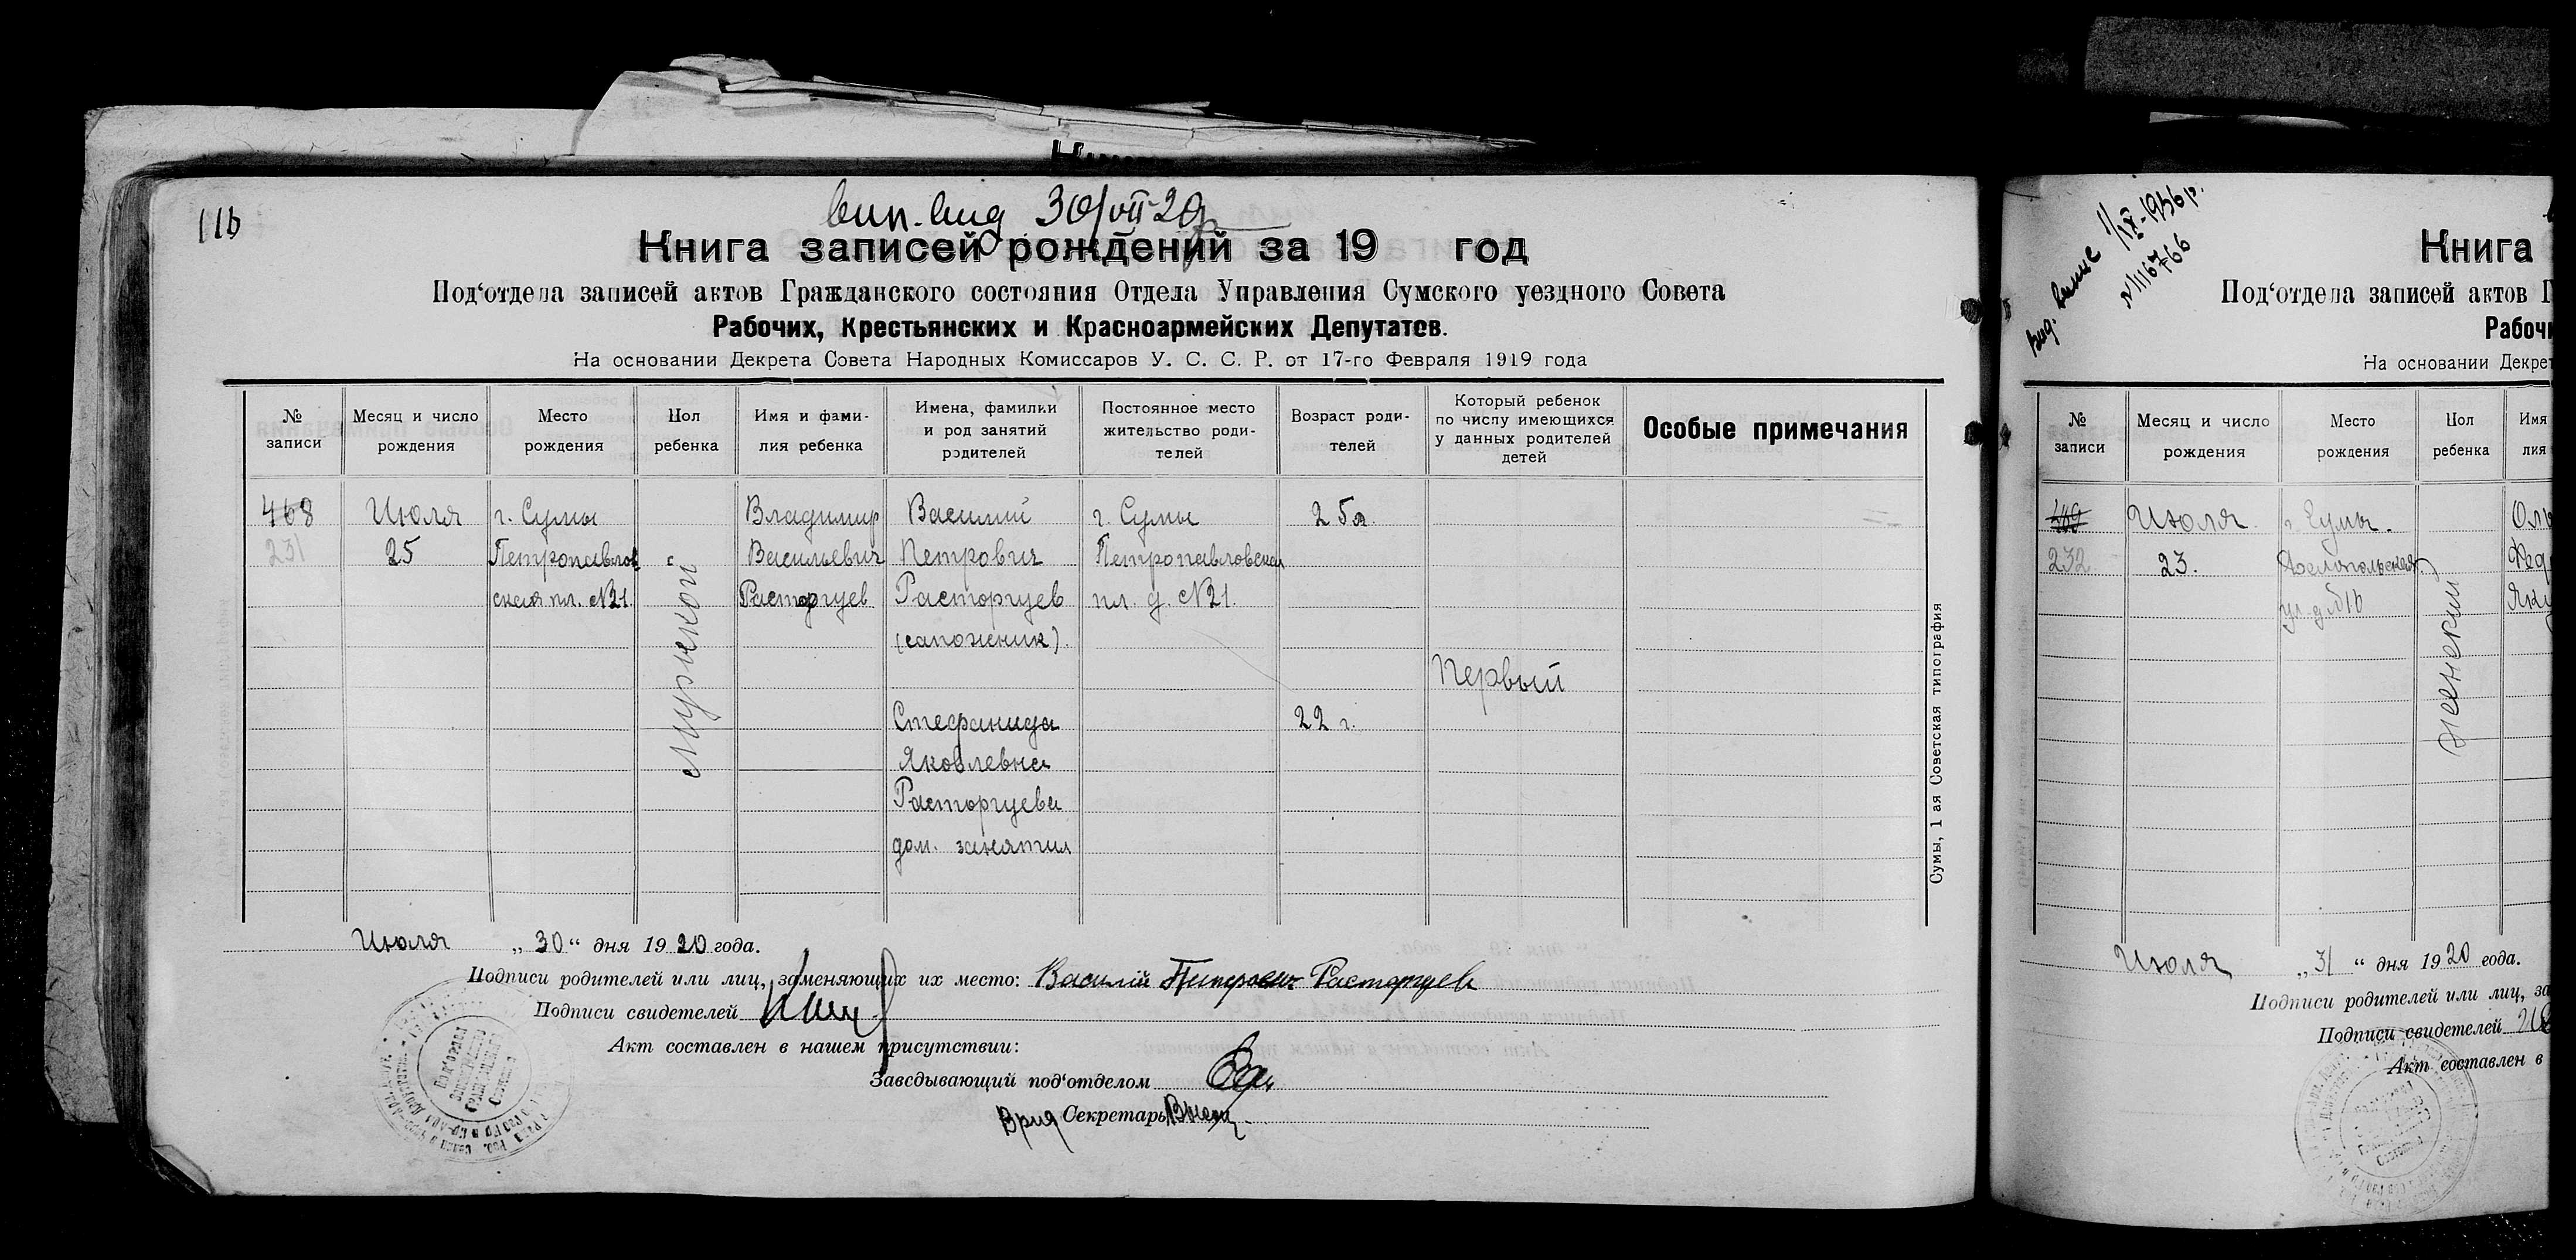 11b
вип. вид 30/VII-20р
Книга записей рождений за 19 год
Под‘отдела записей актов Гражданского состояния Отдела Управления Сумского уездного Совета
Рабочих, Крестьянских и Красноармейских Депутатов.
На основании Декрета Совета Народных Комиссаров У. С. С. Р. от 17-го Февраля 1919 года
№ записи
Месяц и число рождения
Место рождения
Пол ребенка
Имя и фами-
лия ребенка
Имена, фамилии
и род занятий
родителей
Постоянное место
жительство роди-
телей
Возраст роди-
телей
Который ребенок
по числу имеющихся
у данных родителей
детей
Особые примечания
468
231
Июля
25
г. Сумы
Петропавлов
ская пл. №21.
Мужской
Владимир
Васильевич
Расторгуев
Василий
Петрович
Расторгуев
(сапожник).
Стефанида
Яковлевна
Расторгуева
дом. занятия
г. Сумы
Петропавловская
пл. д. №21.
25л.
22 г.
Первый
Сумы, 1 ая Советская типография
Июля „30“ дня 1920 года.
Подписи родителей или лиц, заменяющих их место: Василий Петрович Расторгуев
Подписи свидетелей
Акт составлен в нашем присутствии:
Заведывающий под‘отделом
Врид Секретарь
вид.
/IX-1936р.
№116766
Книга
Под‘отдела записей актов Г
Рабочи
На основании Декрет
№ записи
Месяц и число рождения
Место рождения
Пол ребенка
Имя
лия
469
232
Июля
23.
г. Сумы.
ул. д. №16
женский
Оль
Фед
Яки
Июля „31“ дня 1920 года.
Подписи родителей или лиц, за
Подписи свидетелей
Акт составлен в